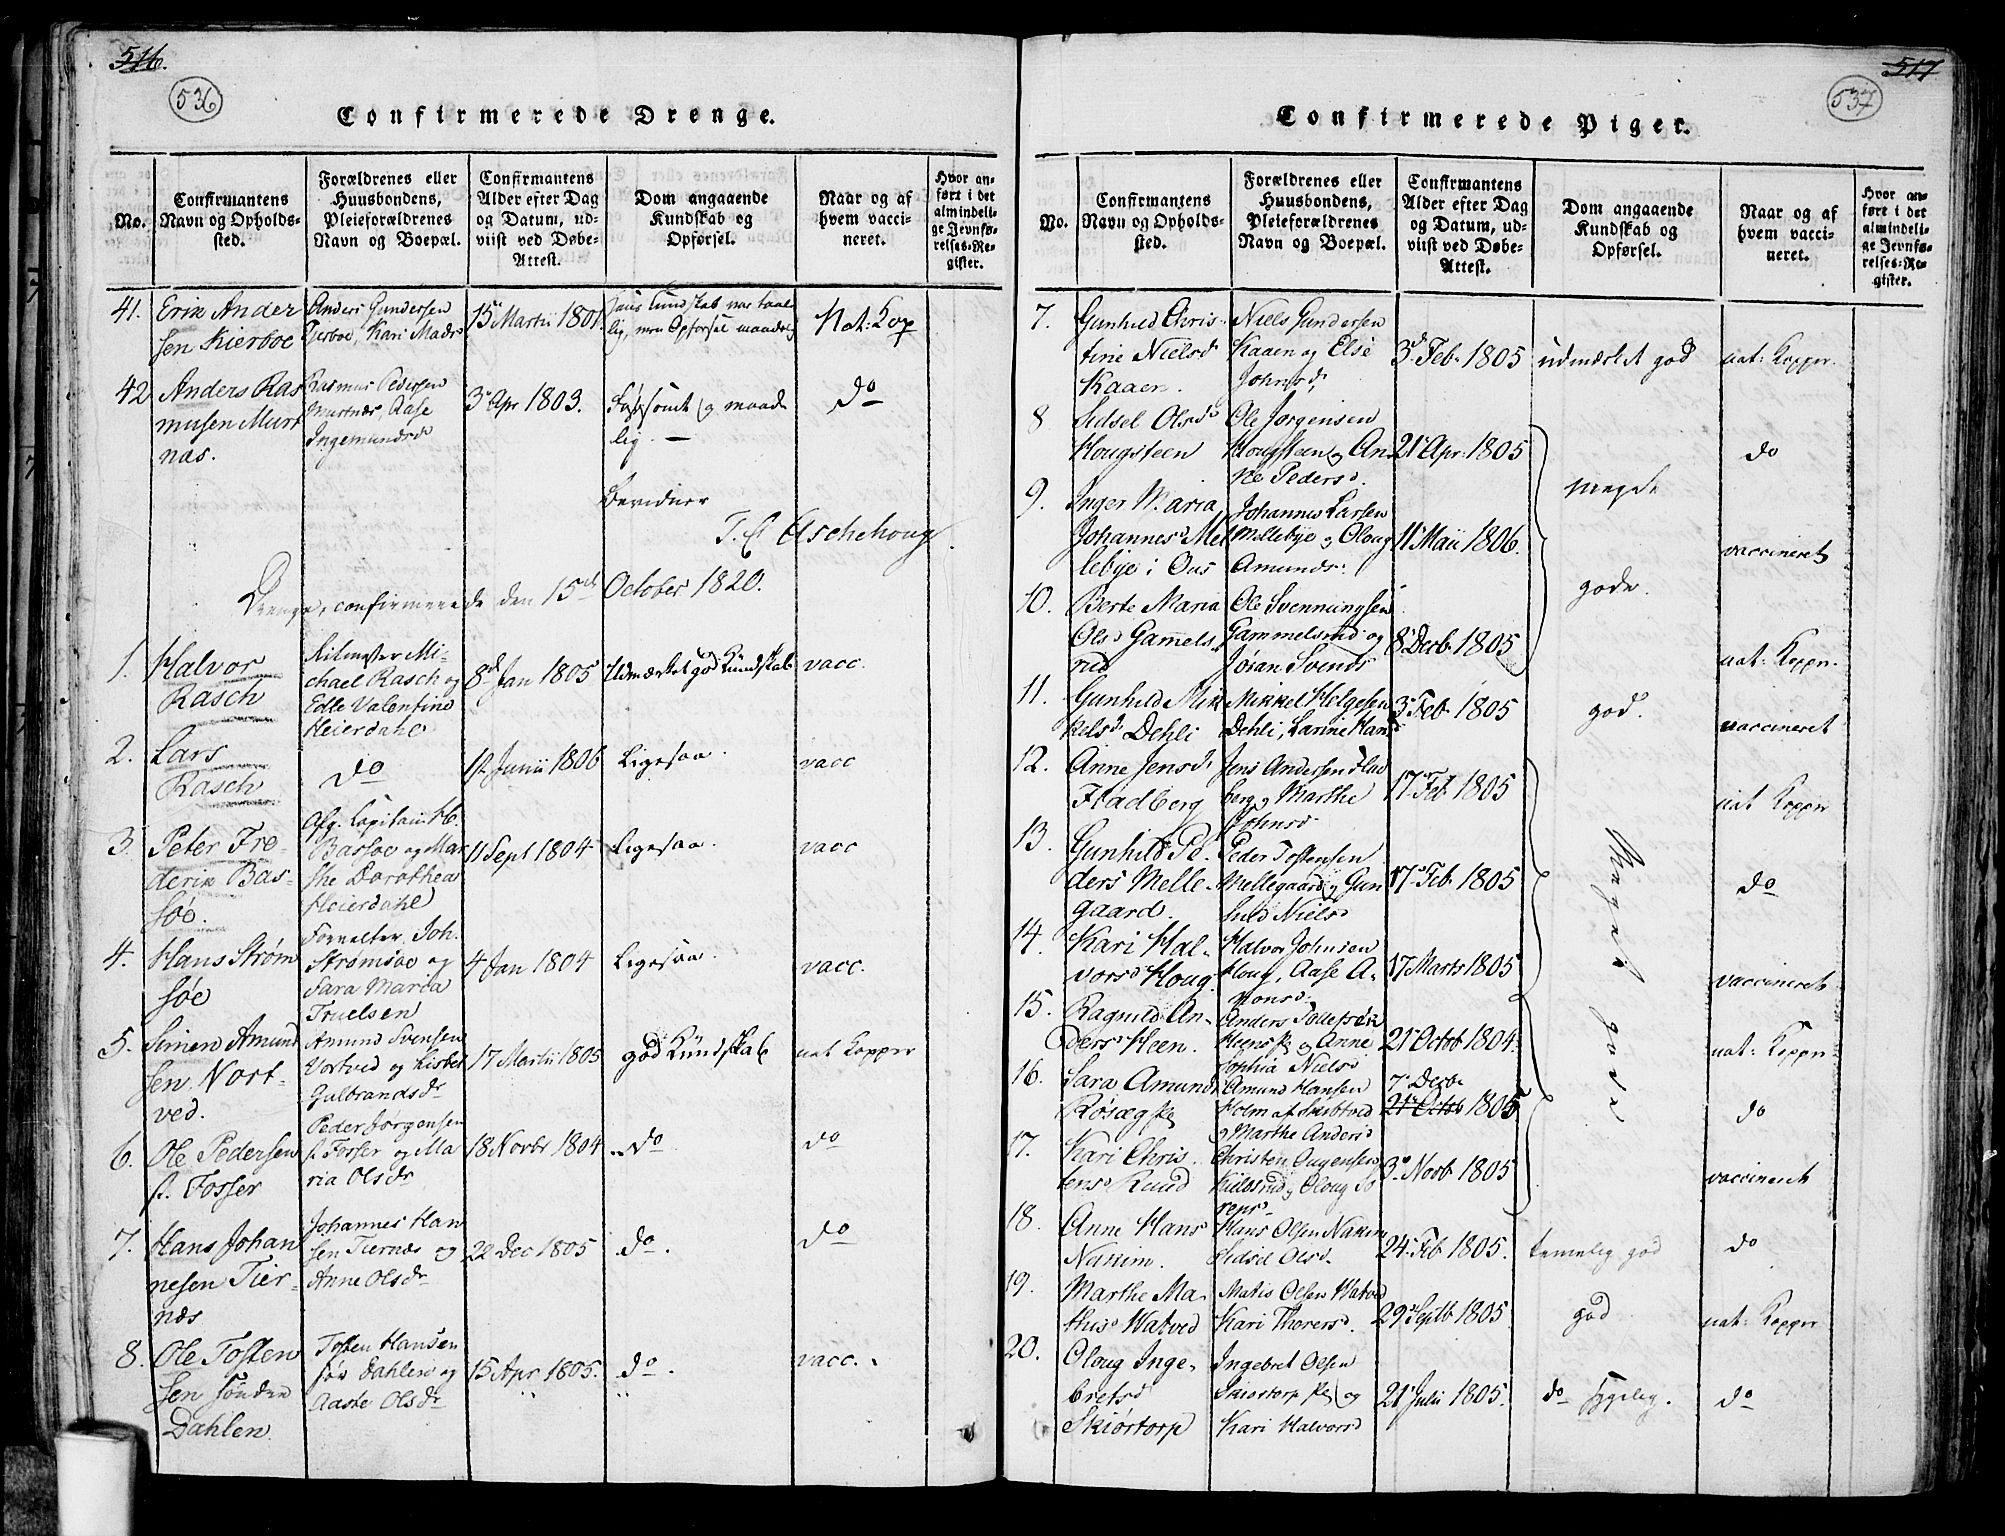 516.
536
Confirmerede Drenge.
No.
Confirmantens
Navn og Opholds-
sted.
Forældrenes eller
Huusbondens,
Pleieforældrenes
Navn og Boepæl.
Confirmantens
Alder efter Dag
og Datum, ud-
viist ved Døbe-
Attest.
Dom angaaende
Kundskab og
Opførsel.
Naar og af
hvem vacci-
neret.
Hvor an-
ført i det
almindeli-
ge Jevnfø-
relses-Re-
gister.
41.
Erik Ander
sen Kierboe
Anders Gundersen
Kjerboe, Kari Madsd
15 Martii 1801.
hans Kundskab var taal
lig, men Opførsel maadelig
Nat: Kop
42
Anders Ras
musen Murt
næs.
Rasmus Pedersen
Murtnæs, Aase
Ingemundsd
3 Apr 1803.
og maade
lig. —
do
Bevidner
T. C. Aschehoug
Drenge, confirmerede den 15de October 1820.
1.
Halvor
Rasch
Ritmester Mi-
chael Rasch og
Edle Valentine
Heierdahl
8d Jan 1805
Udmærket god Kundskab
vacc.
2.
Lars
Rasch
do
12 Junii 1806
Ligesaa.
vacc
3.
Peter Fre-
derik Bas-
søe.
Afg. Capitain H.
Bassøe og Mar
the Dorothea
Heierdahl
11 Sept 1804
Ligesaa.
vacc
4.
Hans Strøm
søe
Forvalter Joh.
Strømsøe og
Sara Maria
Truelsen
4 Jan 1804
Ligesaa.
vacc.
5.
Simen Amund
sen Nort-
ved.
Amund Svensen
Nortved og Lisbet
Gulbrandsdr
17 Martii 1805
god Kundskab
nat Kopper
6.
Ole Pedersen
p. Fosser
Peder Jørgensen
p. Fosser og Ma
ria Olsdr
18 Novbr 1804
do
do
7.
Hans Johan
nesen Tier-
næs
Johannes Han
sen Tiernæs og
Anne Olsdr
22 Dec 1805
do.
do
8.
Ole Tosten
sen Sønden
Dahlen
Tosten Hansen
søn Dahlen og
Aaste Olsdr
15 Apr 1805.
do.
vacc.
517
537
Confirmerede Piger.
No.
Confirmantens
Navn og Opholds-
sted.
Forældrenes eller
Huusbondens,
Pleieforældrenes
Navn og Boepæl.
Confirmantens
Alder efter Dag
og Datum, ud-
viist ved Døbe-
Attest.
Dom angaaende
Kundskab og
Opførsel.
Naar og af
hvem vacci-
neret.
Hvor an-
ført i det
almindeli-
ge Jevnfø-
relses-Re-
gister.
7.
Gunhild Chris-
tine Nielsd
Kaaen.
Niels Gundersen
Kaaen og Else
Johnsd.
3d Feb. 1805
udmærket god
nat: Kopper
8
Sidsel Olsd
Hougsteen
Ole Jørgensen
Hougsteen og An-
ne Pedersd.
21 Apr. 1805
do
9.
Inger Maria
Johannesd Mel
lebye i Ous
Johannes Larsen
Mellebye og Oloug
Amundsd.
11 Maii 1806.
meget
gode.
vaccineret
10.
Berte Maria
Olsd Gamels-
rud
Ole Svenningsen
Gammelsrud og
Jøran Svensd
8 Decb. 1805
nat: Kopper
11.
Gunhild Mik
kelsd Dehli
Mikkel Helgesen
Dehli, Karine Hansd
3 Feb. 1805
god.
vaccineret
12.
Anne Jensd
Fladberg
Jens Andersen Flad
berg og Marthe
Johnsd
17 Feb. 1805
nat Kopper
13.
Gunhild Pe-
dersd Melle-
gaard.
Peder Tostensen
Mellegaard og Gun
hild Nielsd
17 Feb. 1805
meget gode
do
14.
Kari Hal-
vorsd Houg.
Halvor Johnsen
Houg, Aase A-
monsd.
17 Marts 1805
vaccineret
15.
Ragnild An-
dersd Heen.
Anders Tollefsen
Heen og Anne
Sophia Nielsd
21 Octob 1804.
nat: Kopper
16.
Sara Amundsd
Røsæg
Amund Hansen
Holm af
og Marthe Andersd
7 Decb.
21 Octob 1805
do
17.
Kari Chris
tensd Ruud
Christen
og Oloug To
resd.
3 Novb. 1805
vaccineret
18.
Anne Hansd
Nakkim.
Hans Olsen Nakkim
Sidsel Olsd.
24 Feb 1805.
temelig god
do
19.
Marthe Ma-
thisd Watved
Matis Olsen Watved
Kari Thoresd.
29 Septb 1805
god
nat: Kopper
20.
Oloug Inge-
bretsd
Skiørtorp
Ingebret Olsen
Skiørtorp og
Kari Halvorsd
21 Julii 1805.
do
do